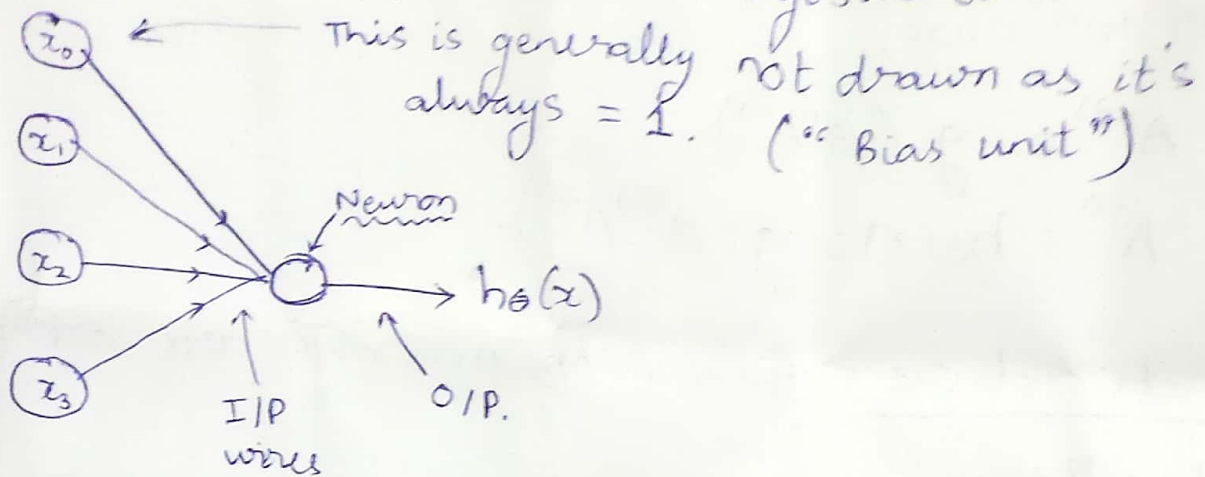 x₀ ← This is generally not drawn as it's
always = 1. ("Bias unit")
x₁
Neuron
x₂
h_θ(x)
x₃
I/P
wires
O/P.